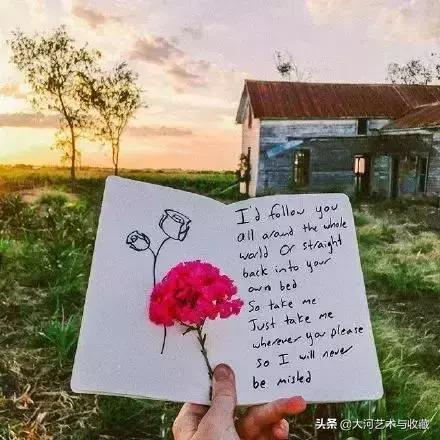 I'd follow you
all around the whole
world Or straight
back into your
own bed
So take me
Just take me
wherever you please
so I will never
be misled
头条 @大河艺术与收藏